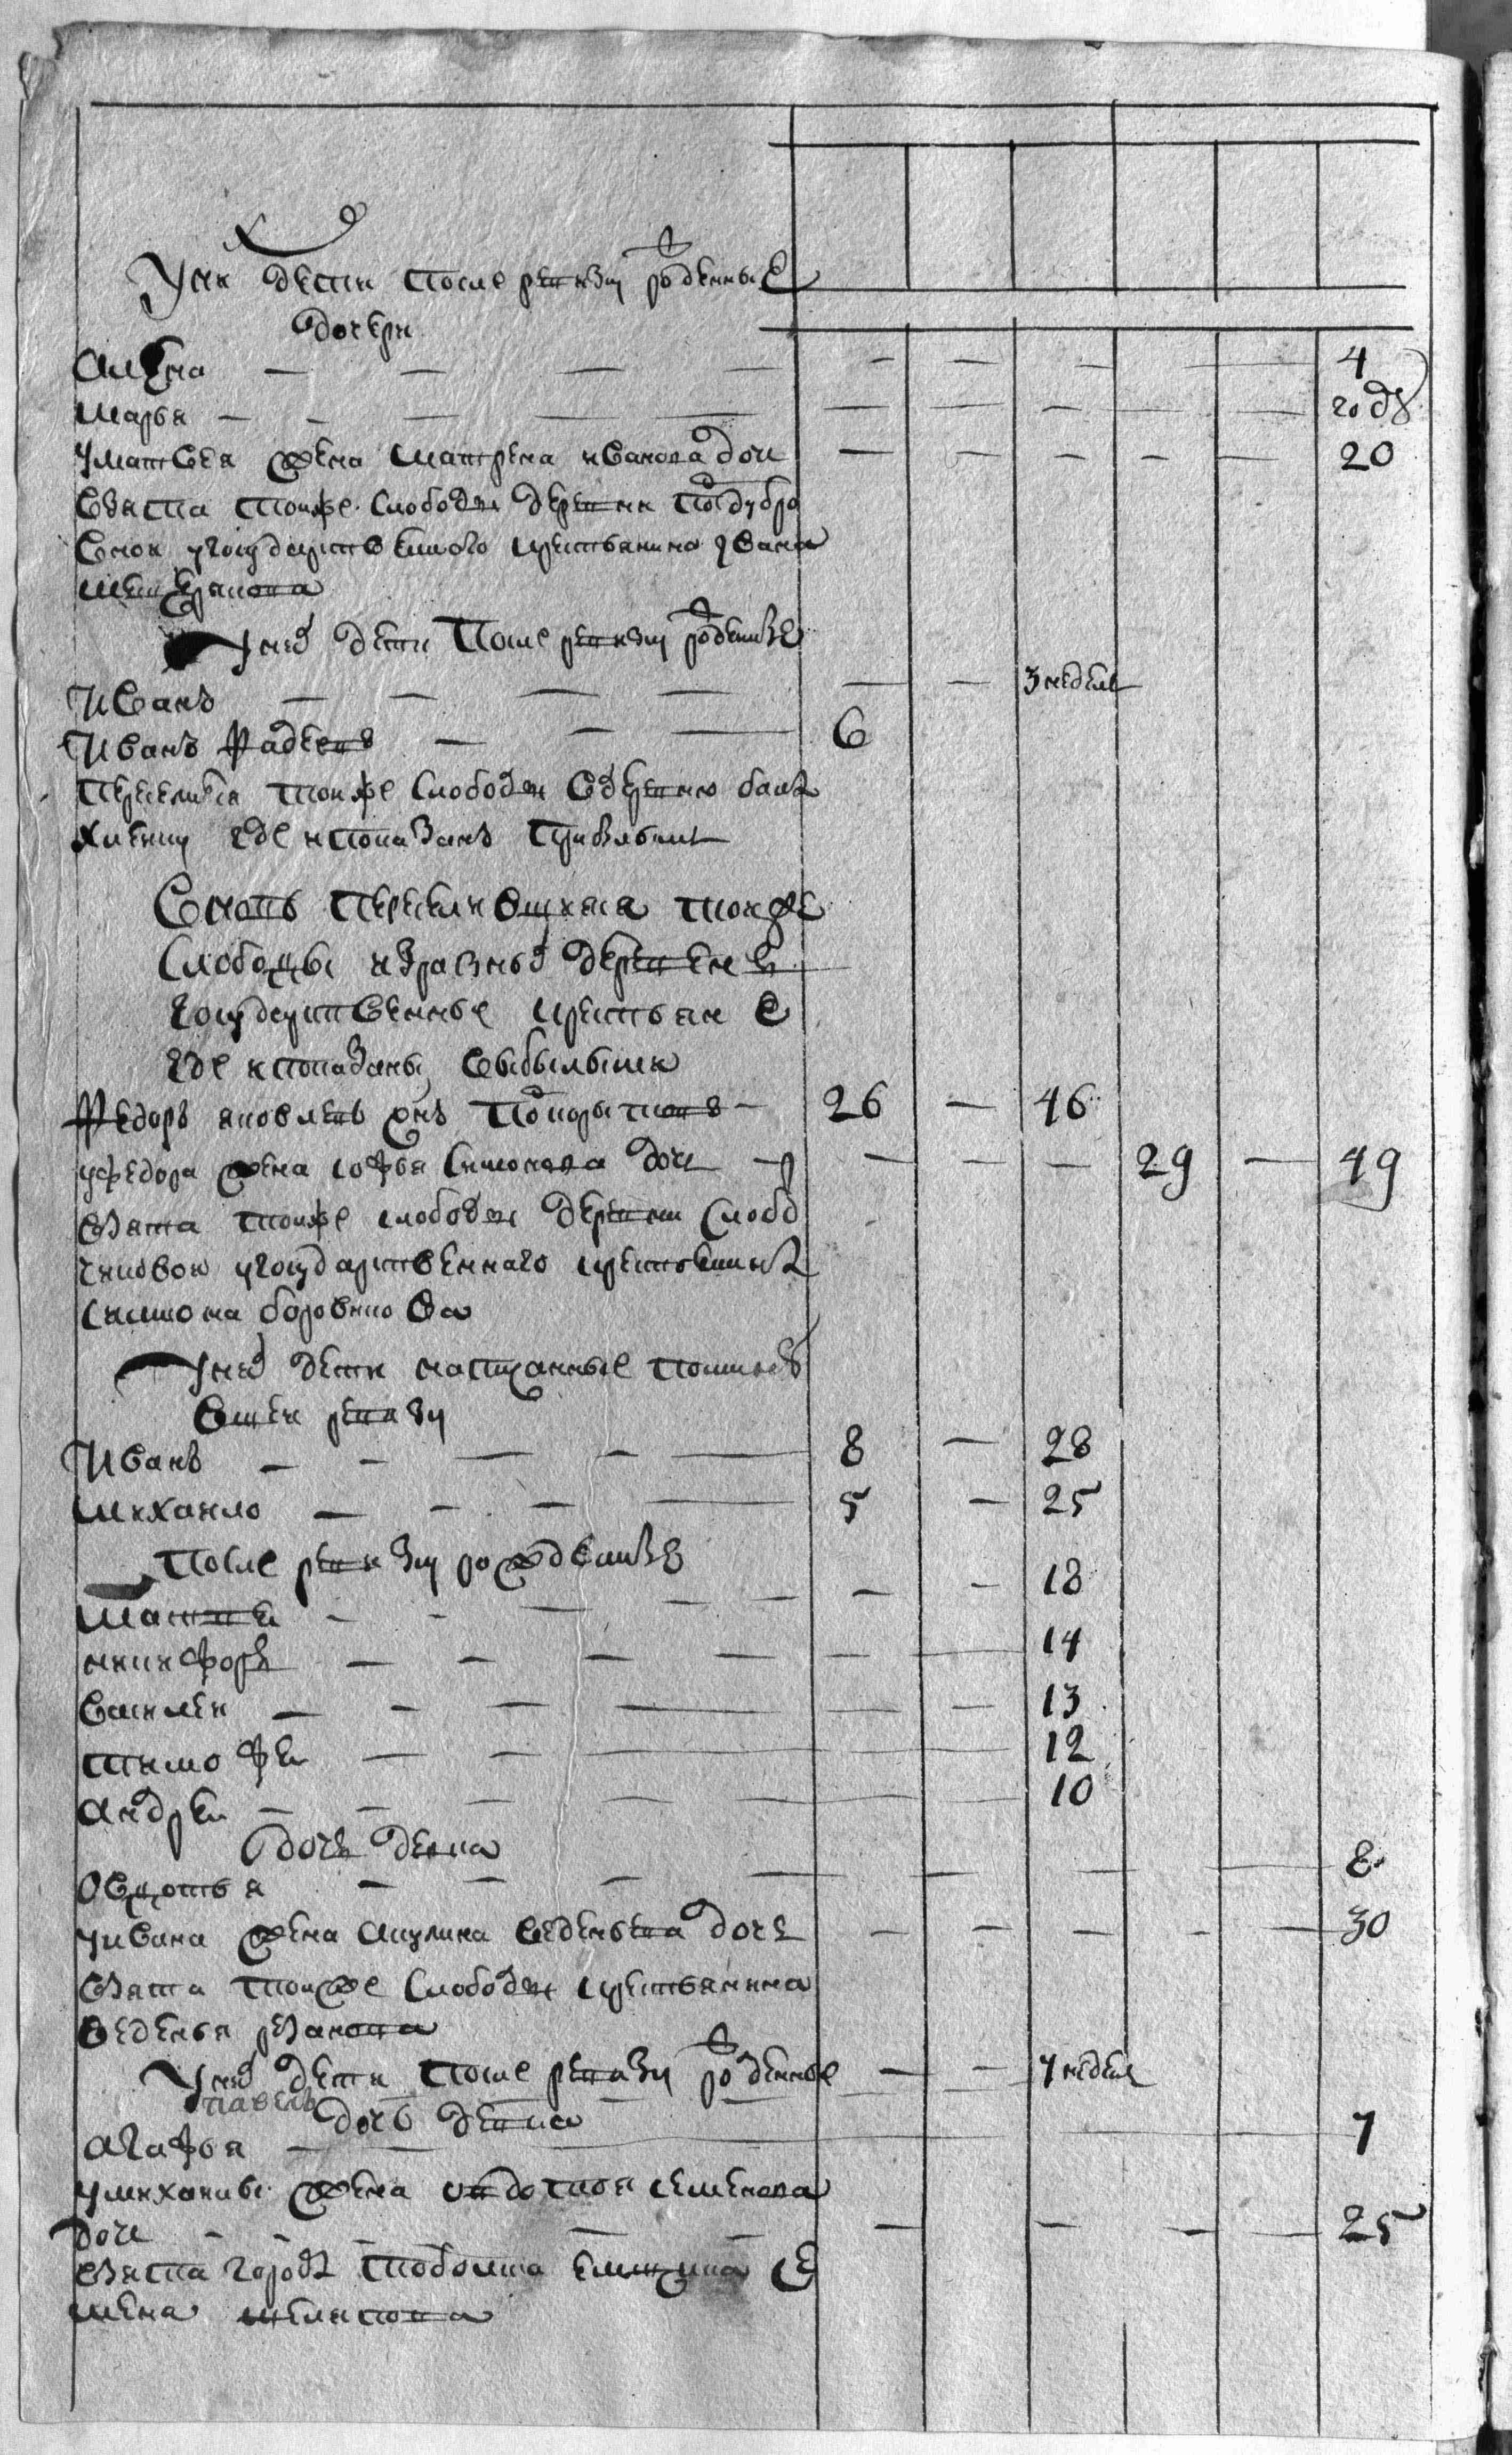 У них дети после ревизи рожденные
дочери
Алена — — — — — — — — — 4
Марья — — — — — — — — — году
У Матвея жена Матрена Иванова дочь — — — — — 20
взята тоиже слободы деревни Поддубро
вной у государственного крестьянина Ивана
Мещерякова
У них дети после ревизи рожденные
Иванъ — — — — — — 3 недель
Иванъ Фадеевъ — — — 6
переселился тоиже слободы в деревню
где и показанъ прибылымъ
Вновь переселившихся тоиже
слободы из разных деревень
государственные крестьяне
где и показаны с выбылыми
Федоръ Яковлевъ сынъ — 26 — 46
У Федора жена Софья Симонова дочь — — — — 29 — 49
взята тоиже слободы деревни Слобод
чиковой у государственного крестьянина
Симона Боровикова
У них дети написанные по последней
ревизи
Иванъ — — — — 8 — 28
Михаило — — — — 5 — 25
После ревизи рожденные
Матвей — — — — — — — 18
Никифоръ — — — — — — 14
Василей — — — — — — 13
Тимофей — — — — — 12
Андрей — — — — — — 10
дочь девка
Овдотья — — — — — — — 8
У Ивана жена Акулина Веденеева дочь — — — — — 30
взята тоиже слободы у крестьянина
Веденея Резанова
У них дети после ревизи рожденные — — 7 недель
Павелъ
дочь девка
Агафья — — — — — 7
У Михаилы жена Овдотья Семенова
дочь — — — — — — — — — 25
взята города Тобольска ямщика Се
мена